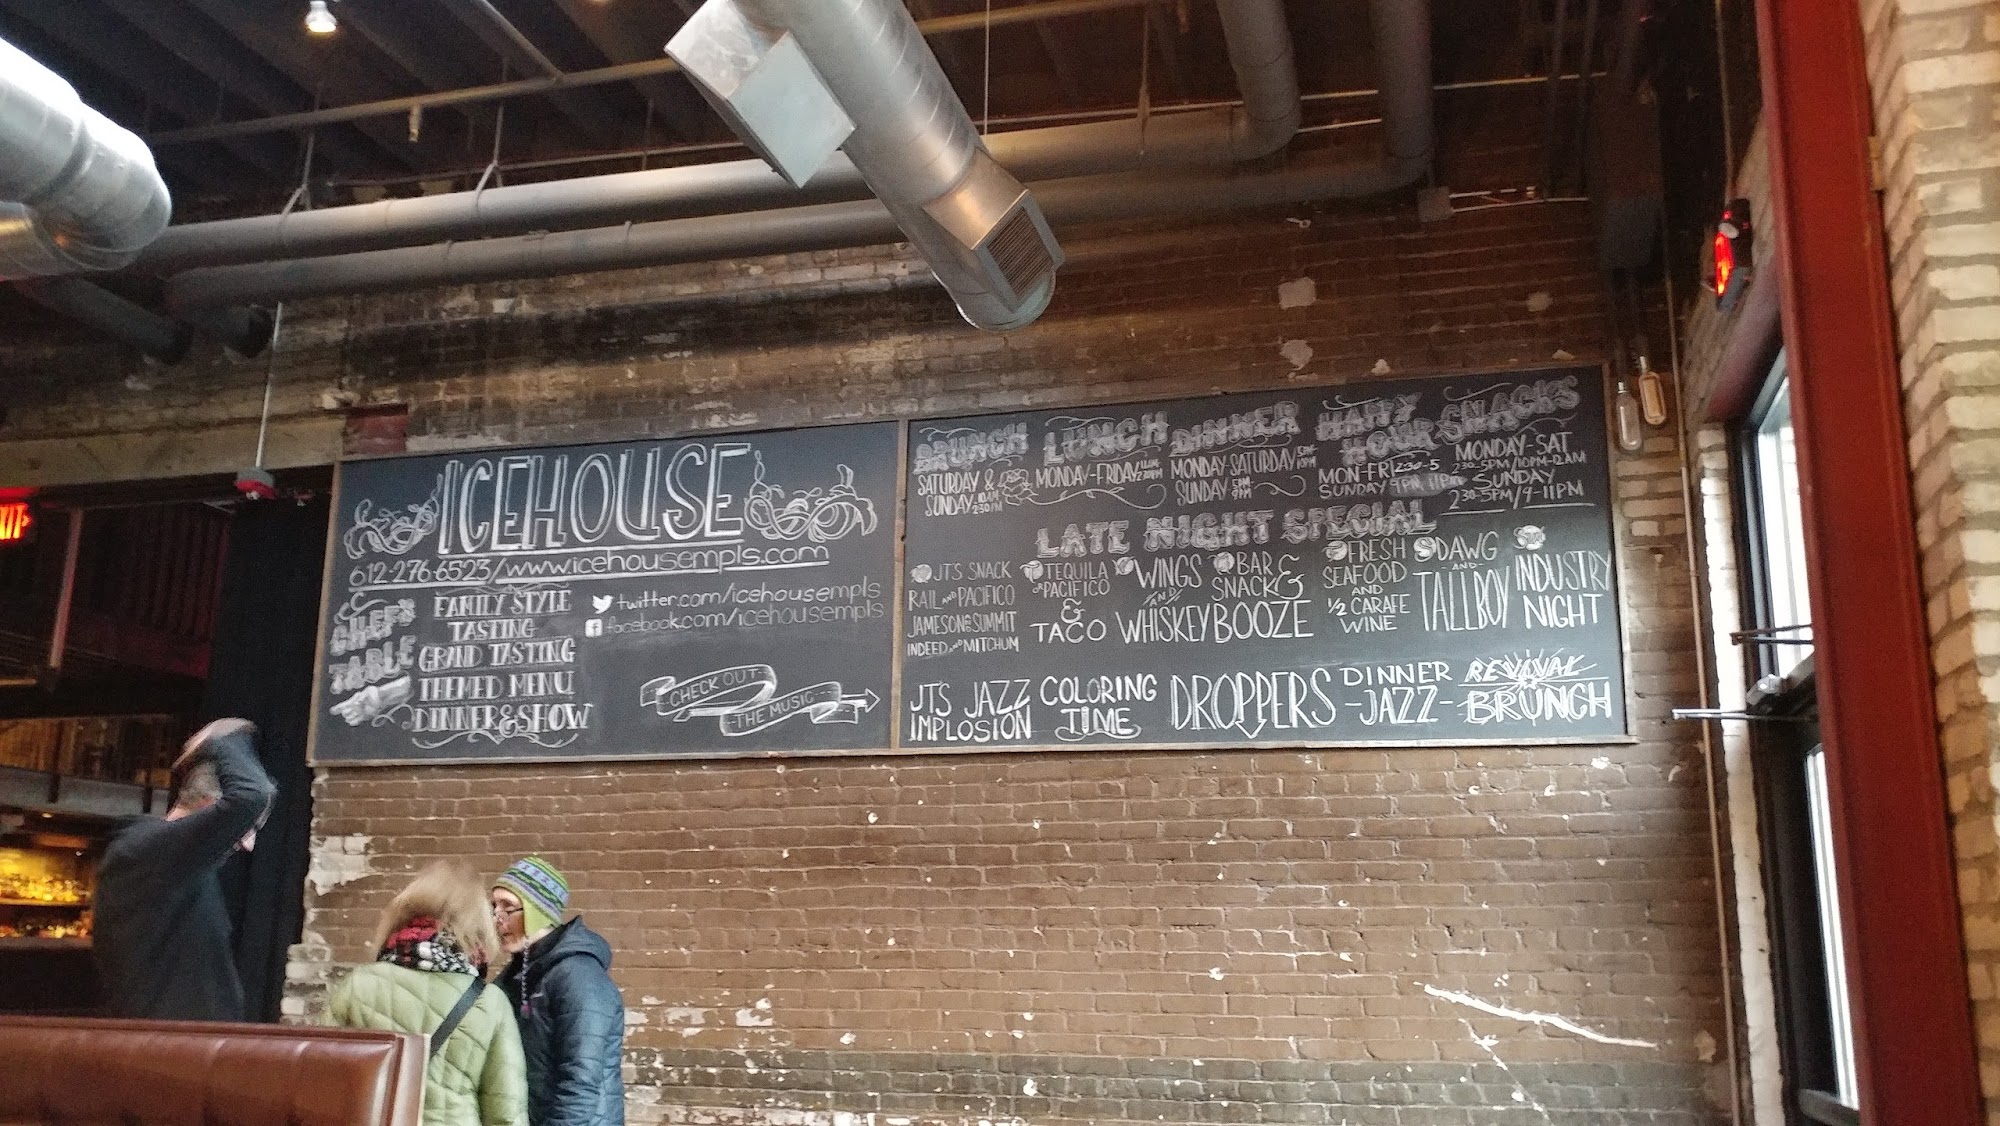 ICEHOUSE
612-276-6523/www.icehousempls.com
CHEF'S
TABLE
FAMILY STYLE
TASTING
GRAND TASTING
THEMED MENU
DINNER & SHOW
twitter.com/icehousempls
facebook.com/icehousempls
CHECK OUT
THE MUSIC
BRUNCH
SATURDAY &
SUNDAY 10AM
2:30PM
LUNCH
MONDAY-FRIDAY
DINNER
MONDAY-SATURDAY 5PM
10PM
SUNDAY 5PM
9PM
HAPPY
HOUR
MON-FRI 2:30-5
SUNDAY 9PM, 11PM
SNACKS
MONDAY-SAT
2:30-5PM/10PM-12AM
SUNDAY
2:30-5PM/9-11PM
LATE NIGHT SPECIAL
JT'S SNACK
RAIL AND PACIFICO
JAMESON AND SUMMIT
INDEED AND MITCHUM
TEQUILA
OR PACIFICO
&
TACO
WINGS
AND
WHISKEY
BAR
SNACK &
BOOZE
FRESH
SEAFOOD
AND
1/2 CARAFE
WINE
DAWG
AND
TALLBOY
INDUSTRY
NIGHT
JT'S JAZZ
IMPLOSION
COLORING
TIME
DROPPERS
DINNER
-JAZZ-
REVIVAL
BRUNCH